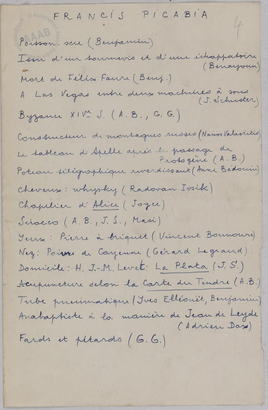 FRANCIS PICABIA
4
Poisson scie (Benjamin)
Issu d'un sournois et d'une échappatoire
(Benayoun)
Mort de Félix Faure (Benj.)
A Las Vegas entre deux machines à sous
(J. Schuster)
Byzance XIVe S. (A.B., G.G.)
Constructeur de montagnes russes (Nanos Valaoritis)
Le tableau d'Apelle après le passage de
Protogène (A.B.)
Poteau télégraphique reverdissant (
Cheveux : whisky (Radovan Ivsik)
Chapelier d'Alice (Joyce)
Sirocco (A.B., J.S., Mesi)
Yeux : Pierre à briquet (Vincent Bounoure)
Nez : Poivre de Cayenne (Gérard Legrand)
Domicile : H. J.-M. Levet : La Plata (J.S.)
Acupuncture selon la Carte du Tendre (A.B.)
Tube pneumatique (Yves Elléouët, Benjamin)
Anabaptiste à la manière de Jean de Leyde
(Adrien Dax)
Fards et pétards (G.G.)